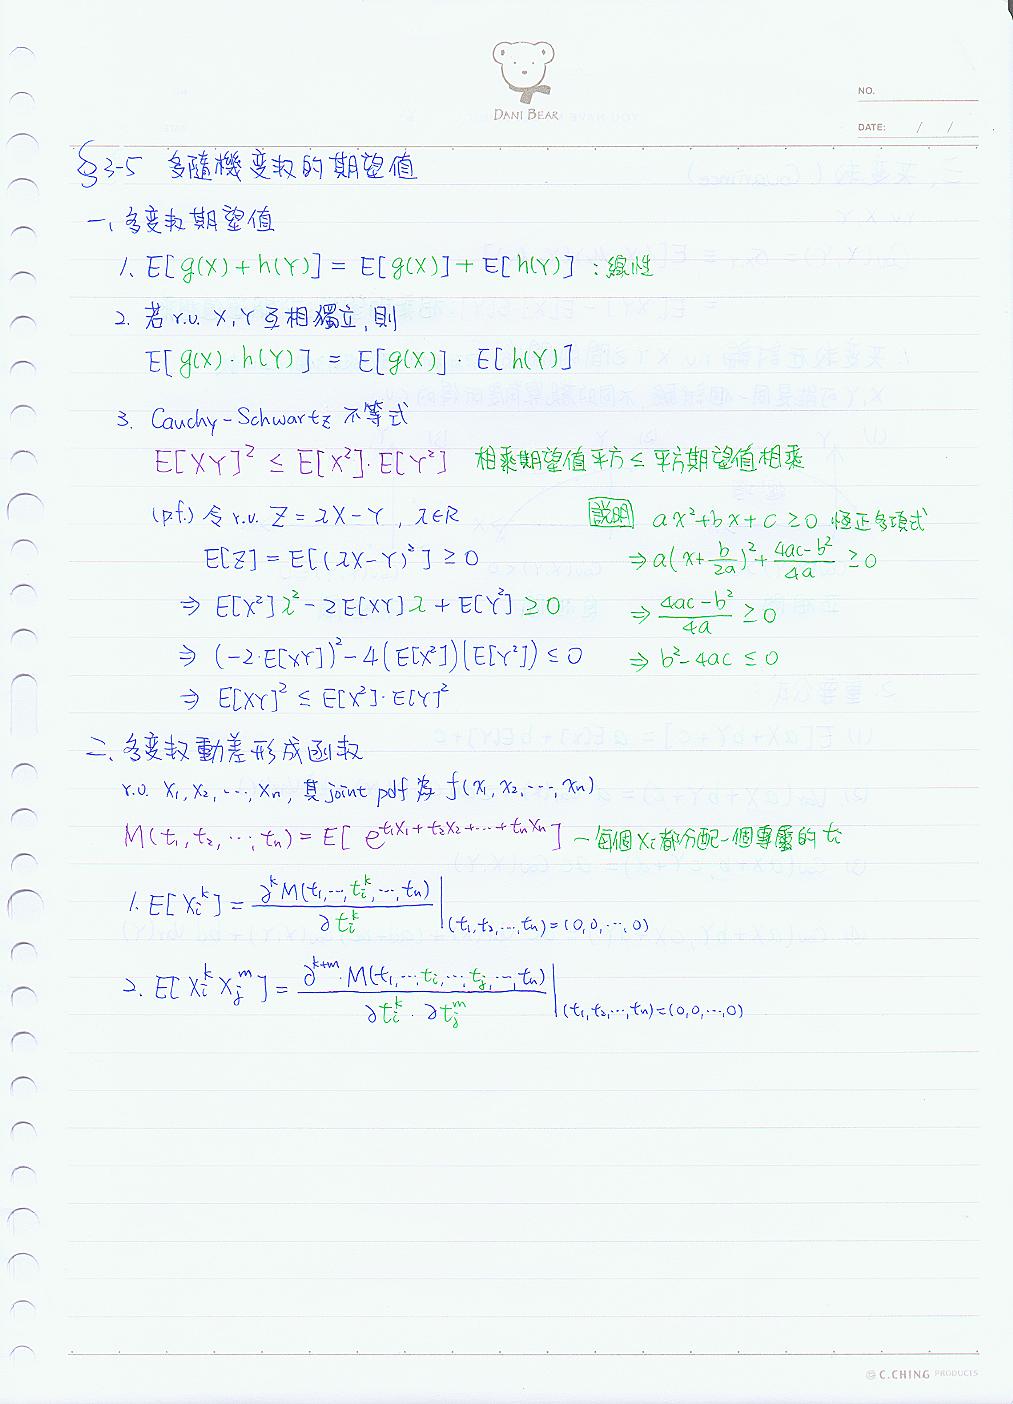 DANI BEAR
NO.
DATE: / /
§3-5 多隨機变数的期望值
一、多变数期望值
1. E[g(X)+h(Y)] = E[g(X)]+E[h(Y)] : 線性
2. 若 r.v. X,Y 互相獨立,則
E[g(X)·h(Y)] = E[g(X)]·E[h(Y)]
3. Cauchy-Schwartz 不等式
E[XY]² ≤ E[X²]·E[Y²] 相乘期望值平方 ≤ 平方期望值相乘
(pf.) 令 r.v. Z = λX-Y , λ∈R
E[Z] = E[(λX-Y)²] ≥ 0
⇒ E[X²]λ² - 2E[XY]λ + E[Y²] ≥ 0
⇒ (-2·E[XY])² - 4(E[X²])(E[Y²]) ≤ 0
⇒ E[XY]² ≤ E[X²]·E[Y]²
說明 ax²+bx+c ≥ 0 恆正多項式
⇒ a(x+b/2a)² + (4ac-b²)/4a ≥ 0
⇒ (4ac-b²)/4a ≥ 0
⇒ b²-4ac ≤ 0
二、多变数動差形成函数
r.v. X₁, X₂, ⋯, Xn, 其 joint pdf 為 f(x₁, x₂, ⋯, xn)
M(t₁, t₂, ⋯, tn) = E[e^(t₁X₁+t₂X₂+⋯+tnXn)] — 每個 Xi 都分配一個專屬的 ti
1. E[Xi^k] = ∂^k M(t₁,⋯,ti^k,⋯,tn) / ∂ti^k |(t₁,t₂,⋯,tn)=(0,0,⋯,0)
2. E[Xi^k Xj^m] = ∂^(k+m)·M(t₁,⋯ti,⋯,tj,⋯,tn) / ∂ti^k·∂tj^m |(t₁,t₂,⋯,tn)=(0,0,⋯,0)
C.CHING PRODUCTS